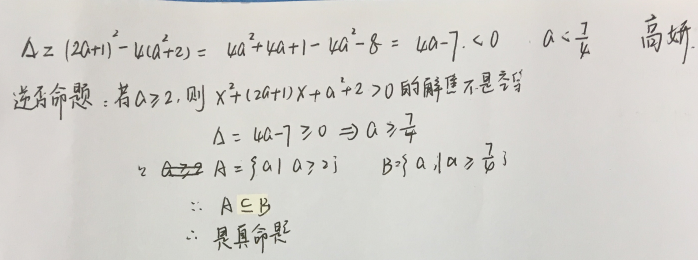 Δ = (2a+1)² - 4(a²+2) = 4a²+4a+1-4a²-8 = 4a-7 < 0 a < 7/4 高妍
逆否命题：若a≥2，则 x²+(2a+1)x+a²+2>0 的解集不是空集
Δ = 4a-7 ≥ 0 ⇒ a ≥ 7/4
∵ A = {a | a ≥ 2} B = {a | a ≥ 7/4}
∴ A ⊆ B
∴ 是真命题